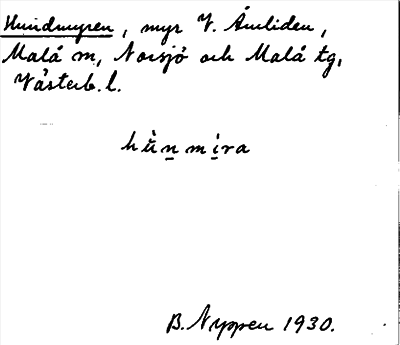 Hundmyren, myr V. Åmliden,
Malå sn, Norsjö och Malå tg,
Västerb. l.
hù̈n̲mi̲ra
B. Nyppen 1930.